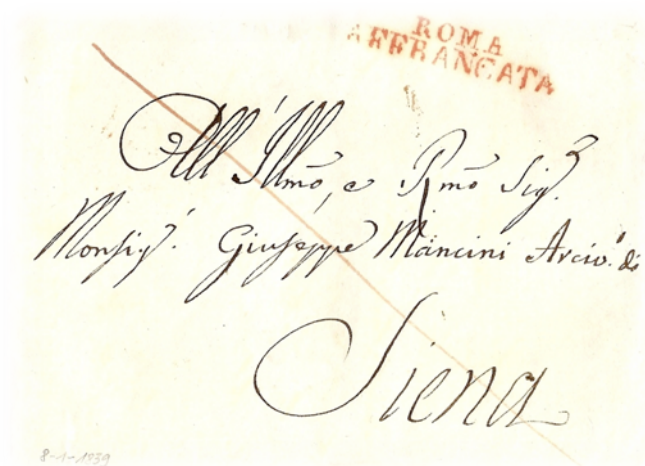 ROMA
AFFRANCATA
All' Illmo, e Rmo Sigr.
Monsigr. Giuseppe Mancini Arciv.o di
Siena
8-1-1839